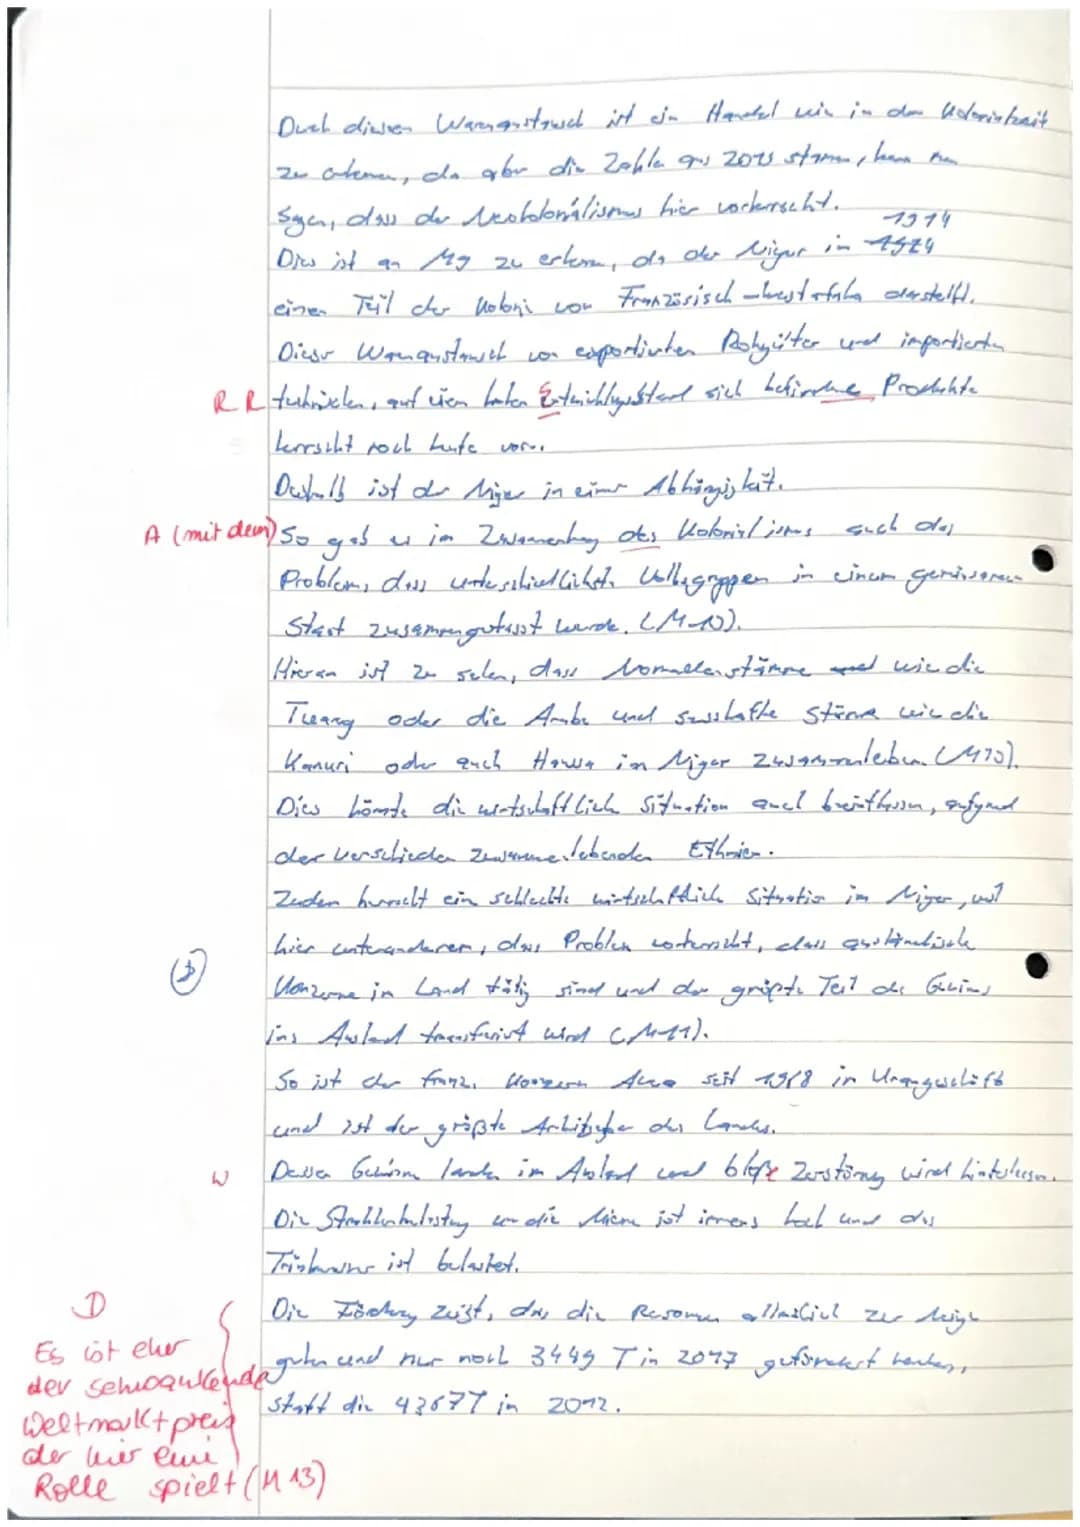 Durch diesen Warenaustausch ist ein Handel wie in der Kolonialzeit
zu erkennen, da aber die Zahlen aus 2015 stammen, kann man
sagen, dass der Neokolonialismus hier vorherrscht.
1914
Dies ist an M9 zu erkennen, da der Niger in
einen Teil der Koloni von Französisch-Westafrika darstellt.
Dieser Warenaustausch von exportierten Rohgüter und importierten
R R technischen, auf einen hohen Entwicklungsstand sich befindene Produkte
herrscht noch heute vor.
Deshalb ist der Niger in einer Abhängigkeit.
A (mit dem) So gab es im Zusammenhang des Kolonialismus auch das
Problem, dass unterschiedlichste Volksgruppen in einem gemeinsamen
Staat zusammengefasst wurde. (M10).
Hieran ist zu sehen, dass Nomadenstämme wie die
Tuareg oder die Araber und sesshafte Stämme wie die
Kanuri oder auch Hausa im Niger zusammenleben (M10).
Dies könnte die wirtschaftlich Situation auch beeinflussen, aufgrund
der verschieden zusammenlebenden Ethnien.
Zudem herrscht ein schlechte wirtschaftlich Situation im Niger, weil
hier unteranderem, das Problem vorherrscht, dass ausländische
Konzerne im Land tätig sind und der größte Teil des Gewinns
ins Ausland transferiert wird (M11).
So ist der franz. Konzern seit 1968 in Urangeschäft
und ist der größte Arbeitgeber des Landes.
W Dessen Gewinn landen im Ausland und bloße Zerstörung wird hinterlassen.
Die Strahlenbelastung um die Miene ist immens hoch und das
Trinkwasser ist belastet.
D Die Förderung zeigt, das die Resourcen allmählich zur Neige
Es ist eher
der schwankende gehen und nur noch 3449 T in 2017 gefördert werden,
Weltmarktpreis statt die 4367 T in 2012.
der hier eine
Rolle spielt (M 13)